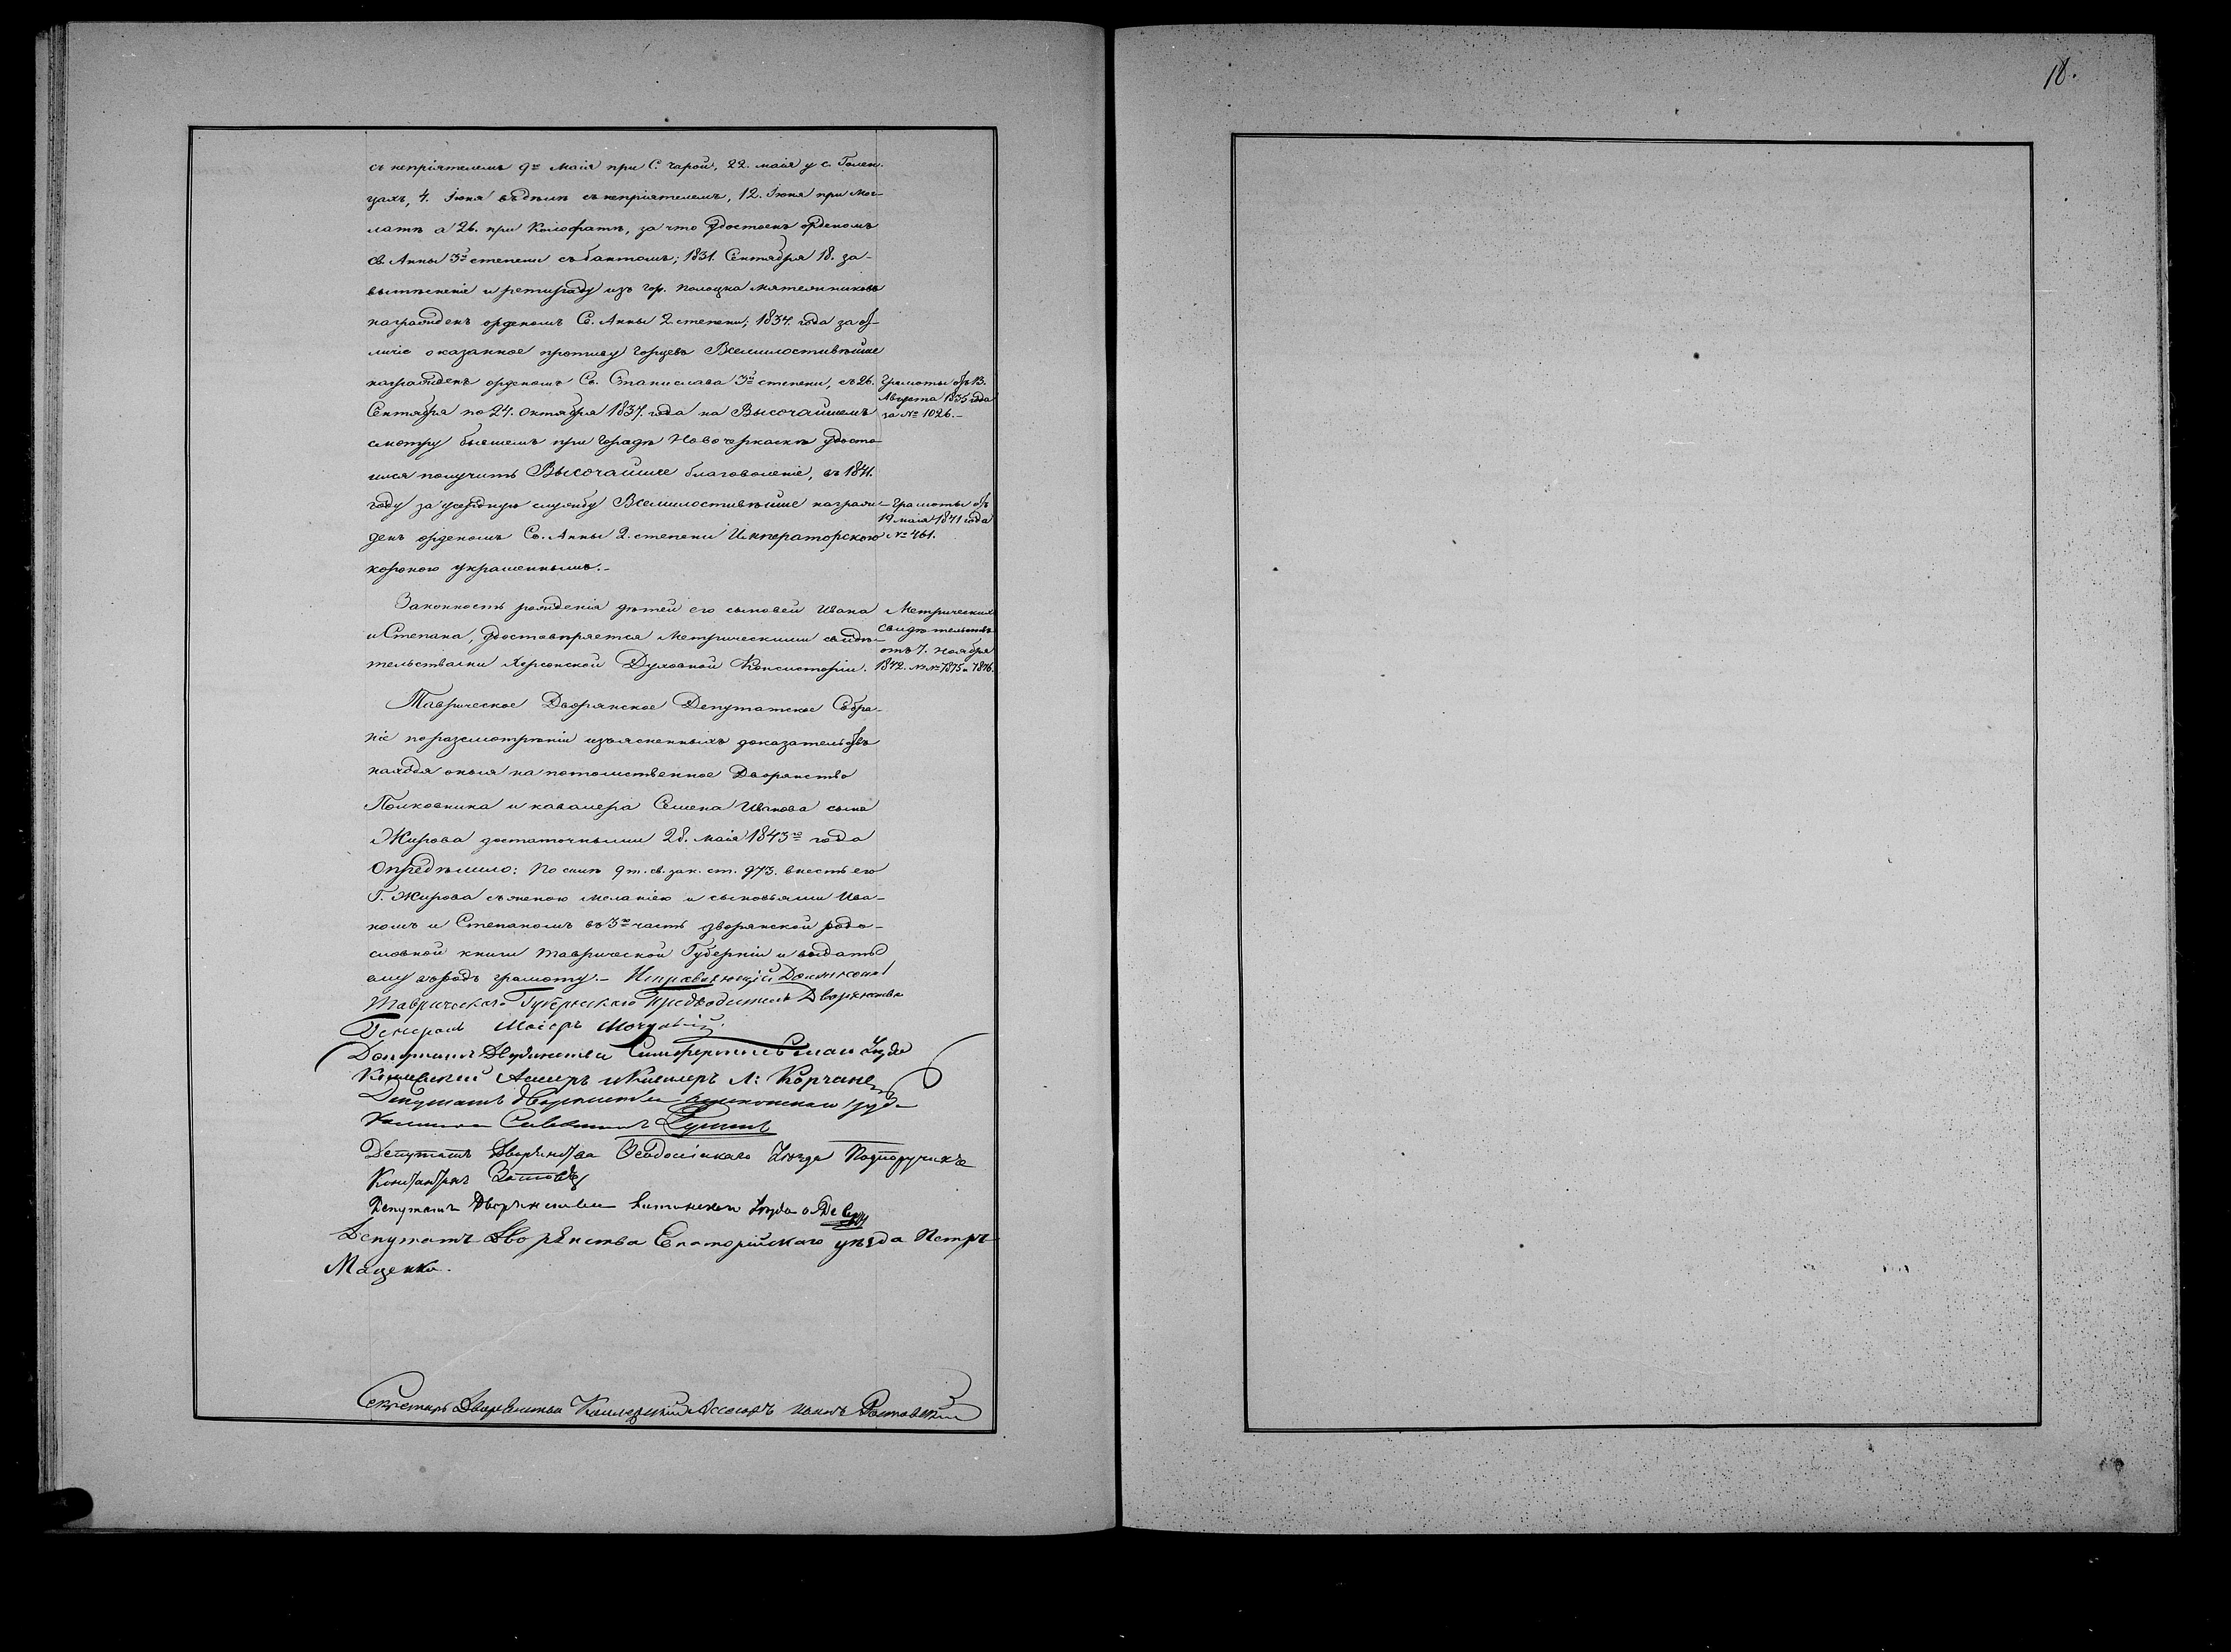 18.
съ непріятелемъ 9го Маія при С. Чарой, 22. маія у с. Голен-
цахъ, 4. Іюня въ дѣлѣ съ непріятелемъ, 12. Іюня при Мог-
латѣ а 26. при Калафатѣ, за что удостоенъ орденомъ
Св. Анны 3й степени съ бантомъ; 1831. Сентября 18. за-
вытѣсненіе и ретираду изъ гор. Полоцка мятежниковъ
награжденъ орденомъ Св. Анны 2 степени; 1834. года за от-
личіе оказанное противу Горцевъ Всемилостивѣйше
награжденъ орденомъ Св. Станислава 3й степени, съ 26.
Грамоты отъ 13.
Августа 1835 года
за № 1026.-
Сентября по 24. Октября 1837. года на Высочайшемъ
смотру бывшемъ при Городѣ Новочеркаскѣ удосто-
ился получить Высочайшее благоволеніе, въ 1841.
году за усердную службу Всемилостивѣйше награж-
Грамоты отъ
19 маія 1841 года
№ 461.
денъ орденомъ Св. Анны 2. степени Императорскою
короною украшеннымъ.-
Законность рожденія дѣтей его сыновей Ивана
и Степана, удостовѣряется Метрическими свидѣ-
тельствами Херсонской Духовной Консисторіи.
Метрическихъ
свидѣтельствъ
отъ 7. Ноября
1842. №№ 7875 и 7876.
Таврическое Дворянское Депутатское Собра-
ніе по разсмотрѣніи изъясненныхъ доказательствъ
находя оныя на потомственное Дворянство
Полковника и кавалера Семена Иванова сына
Жирова достаточными 28. Маія 1843го года
Опредѣлило: По силѣ 9 т. св. зак. ст. 973. внесть его
Г. Жирова съ женою Меланіею и сыновьями Ива-
номъ и Степаномъ въ 3ю часть дворянской родо-
словной книги Таврической Губерніи и выдать
ему въ родъ грамоту.- Исправляющій Должность
Таврическаго Губернскаго Предводителя Дворянства
Генералъ Маіоръ
Депутатъ Дворянства Симферопольскаго Уѣзда
Колежскій Асесоръ и Кавалеръ Л:
Депутатъ Дворянства
Депутатъ Дворянства Ѳеодосійскаго Уѣзда Подпоручикъ
Константинъ
Депутатъ Дворянства Ялтинскаго Уѣзда
Депутатъ Дворянства Евпаторійскаго уѣзда Петръ
Маценко.
Секретарь Дворянства Коллежскій Ассесоръ Иванъ